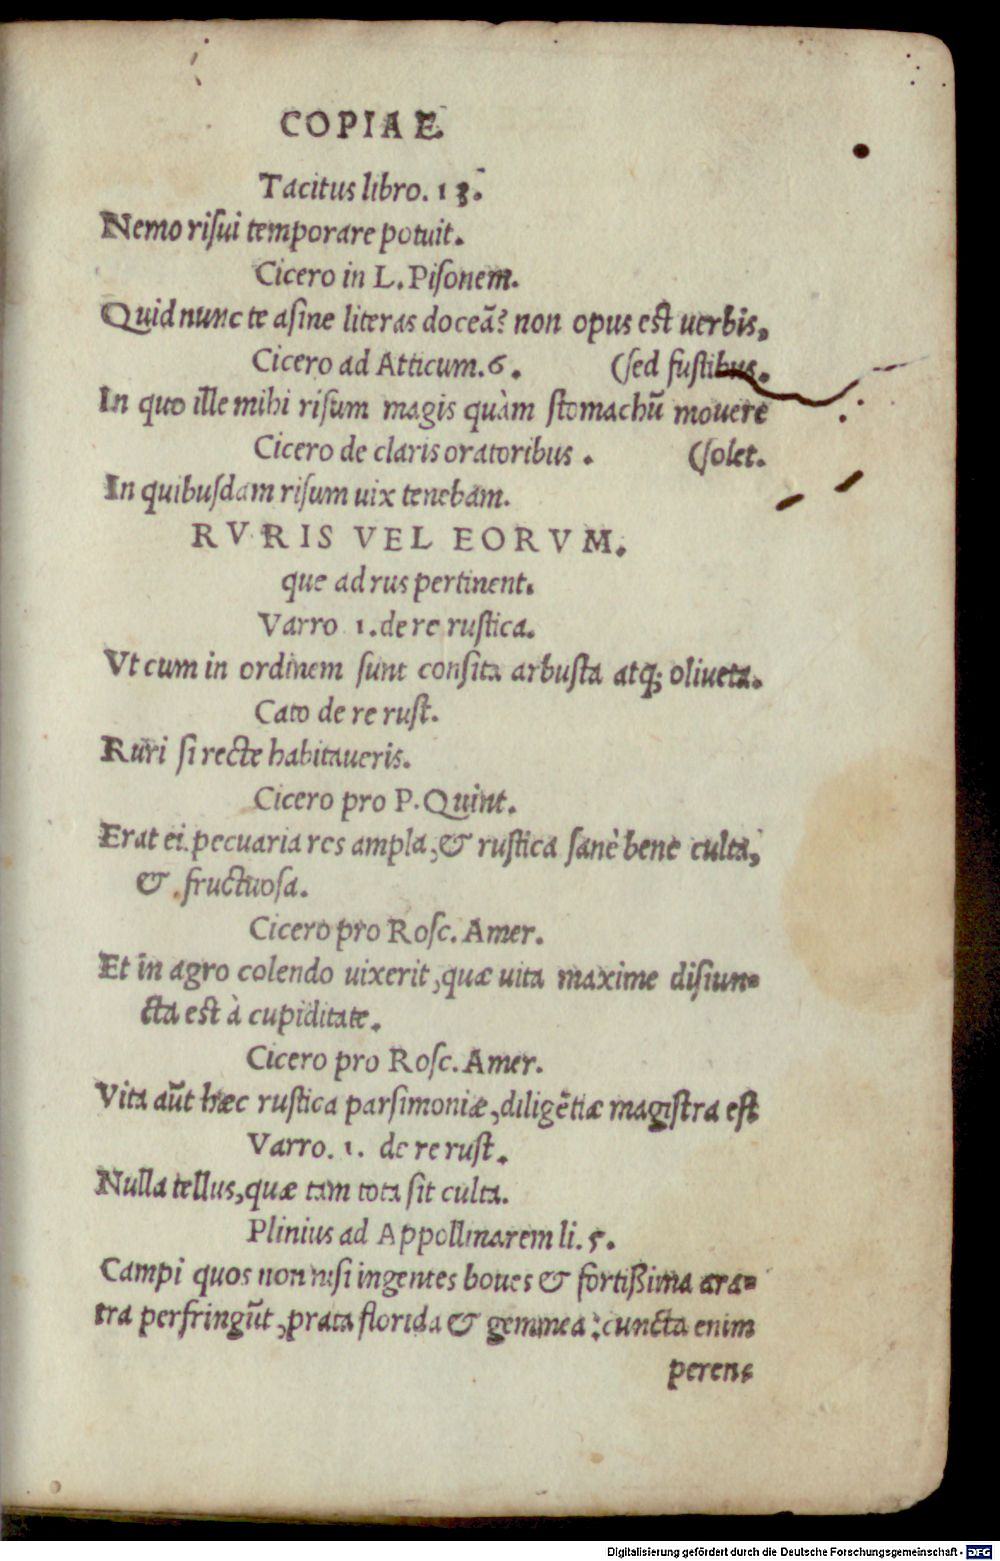 COPIAE
Tacitus libro. 13.
Nemo risui temporare potuit.
Cicero in L. Pisonem.
Quid nunc te asine literas doceā? non opus est uerbis,
Cicero ad Atticum. 6. (sed fustibus.
In quo ille mihi risum magis quàm stomachū mouere
Cicero de claris oratoribus. (solet.
In quibusdam risum uix tenebam.
RVRIS VEL EORVM.
que ad rus pertinent.
Varro 1. de re rustica.
Vt cum in ordinem sunt consita arbusta atq; oliueta.
Cato de re rust.
Ruri si recte habitaueris.
Cicero pro P. Quint.
Erat ei. pecuaria res ampla, & rustica sanè bene culta,
& fructuosa.
Cicero pro Rosc. Amer.
Et in agro colendo uixerit, quæ uita maxime disiun=
cta est à cupiditate.
Cicero pro Rosc. Amer.
Vita aūt hæc rustica parsimoniæ, diligētiæ magistra est
Varro. 1. de re rust.
Nulla tellus, quæ tam tota sit culta.
Plinius ad Appollinarem li. 5.
Campi quos non nisi ingentes boues & fortißima ara=
tra perfringūt, prata florida & gemmea: cuncta enim
peren=
Digitalisierung gefördert durch die Deutsche Forschungsgemeinschaft - DFG